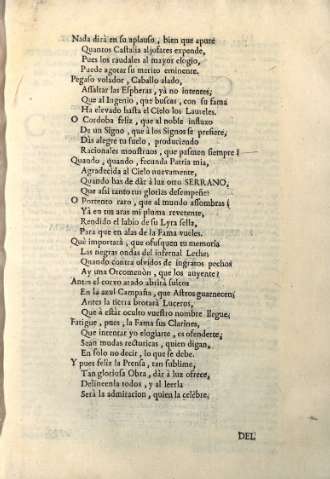 Nada dirá en su aplauso, bien que apure
Quantos Castalia aljofares expende,
Pues los raudales al mayor elogio,
Puede agotar su merito eminente.
Pegaso volador, Caballo alado,
Assaltar las Espheras, yá no intentes;
Que al Ingenio, que buscas, con su fama
Ha elevado hasta el Cielo los Laureles.
O Cordoba feliz, que al noble influxo
De un Signo, que à los Signos se prefiere,
Dàs alegre tu suelo, produciendo
Racionales monstruos, que pasmen siempre!
Quando, quando, fecunda Patria mia,
Agradecida al Cielo nuevamente,
Quando has de dàr à luz otro SERRANO,
Que assi tanto tus glorias desempeñe?
O Portento raro, que al mundo assombras!
Yà en tus aras mi pluma reverente,
Rendido el labio de su Lyra sella,
Para que en alas de la Fama vueles.
Què importarà, que ofusquen tu memoria
Las negras ondas del infernal Lethe;
Quando contra olvidos de ingratos pechos
Ay una Orcomenòn, que los auyente?
Antes el corvo arado abrirà sulcos
En la azul Campaña, que Astros guarnecen;
Antes la tierra brotarà Luceros,
Que à estàr oculto vuestro nombre llegue;
Fatigue, pues, la Fama sus Clarines,
Que intentar yo elogiarte, es ofenderte;
Sean mudas rectoricas, quien digan,
En solo no decir, lo que se debe.
Y pues feliz la Prensa, tan sublime,
Tan gloriosa Obra, dàr à luz ofrece,
Delineenla todos, y al leerla
Serà la admiracion, quien la celèbre.
DEL